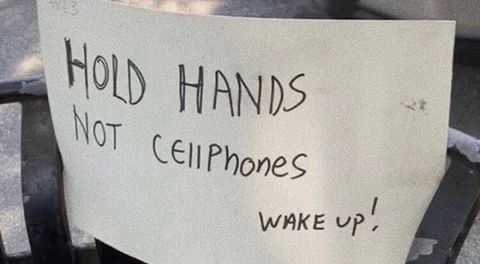 HOLD HANDS
NOT CEllPhoNES
WAKE UP!